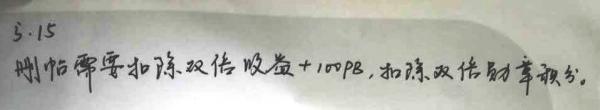 5.15
删帖需要扣除双倍收益+100PB,扣除双倍勋章积分。